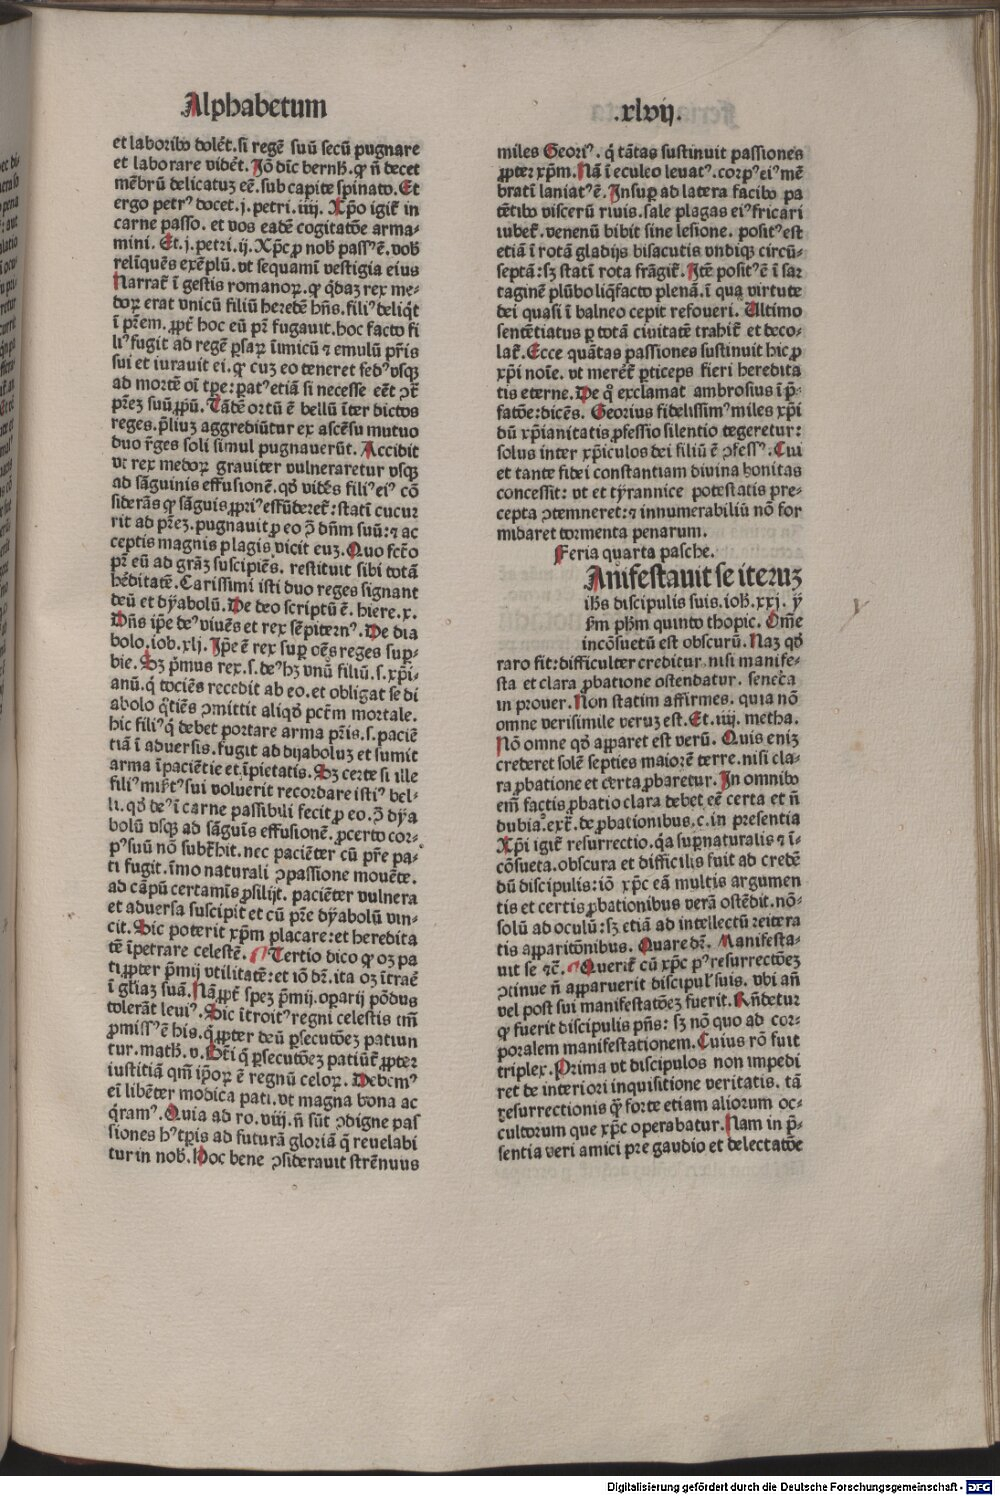 Alphabetum
.xlvij.
et laborib9 dolēt. si regē suū secū pugnare
et laborare vidēt. Iō dīc bernh. ꝙ ñ decet
mēbrū delicatuꝫ eē. sub capite spinato. Et
ergo petrꝰ docet. j. petri. iiij. Xp̄o igit̄ in
carne passo. et vos eadē cogitatōe arma-
mini. Et. j. petri. ij. Xp̄c ꝓ nob̄ passꝰ ē. vob̄
relīquēs exēplū. vt sequamī vestigia eius
Narrat̄ ī gestis romanoꝝ. ꝙ q̄daꝫ rex me-
doꝝ erat vnicū filiū heredē hn̄s. filiꝰ deliq̄t
ī pr̄em. ꝓpt̄ hoc eū pr̄ fugauit. hoc facto fi
liꝰ fugit ad regē ꝑsaꝝ īimicū ⁊ emulū pr̄is
sui et iurauit ei. ꝙ cuꝫ eo teneret fedꝰ vsqꝫ
ad mortē oī tꝑe: ꝑatꝰ etiā si necesse eēt ꝯt̄
pr̄eꝫ suū ꝓp̄ū. Tādē ortū ē bellū īter dictos
reges. p̄liuꝫ aggrediūtur ex ascēsu mutuo
duo r̄ges soli simul pugnauerūt. Accidit
vt rex medoꝝ grauiter vulneraretur vsqꝫ
ad sāguinis effusionē. qd̄ vidēs filiꝰ eiꝰ cō
siderās ꝙ sāguis ꝓpriꝰ effūderet̄: statī cucur
rit ad pr̄eꝫ. pugnauit ꝓ eo ꝯ̄ dn̄m suū: ⁊ ac
ceptis magnis plagis vicit euꝫ. Quo fct̄o
pr̄ eū ad grāꝫ suscipiēs. restituit sibi totā
hēditatē. Carissimi isti duo reges signant
deū et dyabolū. De deo scriptū ē. hiere. x.
Dn̄s ip̄e deꝰ viuēs et rex sēpiternꝰ. De dia
bolo. iob. xlj. Ip̄e ē rex suꝑ oēs reges suꝑ-
bie. Sꝫ p̄mus rex. s. deꝰ hꝫ vnū filiū. s. xp̄i-
anū. q̄ tociēs recedit ab eo. et obligat se di
abolo q̄tiēs ꝯmittit aliqd̄ pct̄m mortale.
hic filiꝰ q̄ debet portare arma pr̄is. s. paciē
tiā ī aduersis. fugit ad dijaboluꝫ et sumit
arma īpaciētie et īpietatis. Sꝫ certe si ille
filiꝰ mir̄tꝰ sui voluerit recordare istiꝰ bel-
li. qd̄ deꝰ ī carne passibili fecit ꝓ eo. ꝯ̄ dya
bolū vsqꝫ ad sāguīs effusionē. ꝓcerto cor-
pꝰ suū nō subt̄hit. nec paciēter cū pr̄e pa-
ti fugit. īmo naturali ꝯpassione mouēte.
ad cāpū certamīs ꝓsilijt. paciēter vulnera
et aduersa suscipit et cū pr̄e dyabolū vin-
cit. Sic poterit xp̄m placare: et heredita
tē īpetrare celestē. Tertio dico ꝙ oꝫ pa
ti ꝓpter p̄mij vtilitatē: et iō dr̄. ita oꝫ ītraē
ī gl̄iaꝫ suā. Nā ꝓpt̄ speꝫ p̄mij. oꝑarij pōdus
tolerāt leuiꝰ. Sic ītroitꝰ regni celestis tm̄
ꝓmissꝰ ē his. q̄ ꝓpter deū ꝑsecutōeꝫ patiun
tur. math. v. Bt̄i q̄ ꝑsecutōeꝫ patiūt̄ ꝓpter
iustitiā qm̄ ip̄oꝝ ē regnū celoꝝ. Debemꝰ
ei libēter modica pati. vt magna bona ac
q̄ramꝰ. Quia ad ro. viij. ñ sūt ꝯdigne pas
siones hꝰ tꝑis ad futurā gloriā q̄ reuelabi
tur in nob̄. Hoc bene ꝯsiderauit strēnuus
miles Georiꝰ. q̄ tātas sustinuit passiones
ꝓpter xp̄m. Nā ī eculeo leuatꝰ. corpꝰ eiꝰ mē
bratī laniatꝰ ē. Insuꝑ ad latera facib9 pa
tētib9 viscerū riuis. sale plagas eiꝰ fricari
iubet̄. venenū bibit sine lesione. positꝰ est
etiā ī rotā gladijs bisacutis vndiqꝫ circū-
septā: sꝫ statī rota frāgit̄. Itē positꝰ ē ī sar
taginē plūbo liq̄facto plenā. ī qua virtute
dei quasi ī balneo cepit refoueri. Ultimo
sentētiatus ꝑ totā ciuitatē trahit̄ et deco-
lat̄. Ecce quātas passiones sustinuit hic ꝓ
xp̄i noīe. vt meret̄ ꝑticeps fieri heredita
tis eterne. De q̄ exclamat ambrosius ī p̄-
fatōe: dicēs. Georius fidelissimꝰ miles xp̄i
dū xp̄ianitatis ꝓfessio silentio tegeretur:
solus inter xp̄iculos dei filiū ē ꝯfessꝰ. Cui
et tante fidei constantiam diuina bonitas
concessit: vt et tyrannice potestatis pre-
cepta ꝯtemneret: ⁊ innumerabiliū nō for
midaret tormenta penarum.
Feria quarta pasche.
Anifestauit se iteruꝫ
ih̄s discipulis suis. ioh. xxj. ꝟ
p̄m ph̄m quinto thopic. Om̄e
incōsuetū est obscurū. Naꝫ qd̄
raro fit: difficulter creditur nisi manife-
sta et clara ꝓbatione ostendatur. seneca
in prouer. Non statim affirmes. quia nō
omne verisimile veruꝫ est. Et. iiij. metha.
Nō omne qd̄ apparet est verū. Quis eniꝫ
crederet solē septies maiorē terre. nisi cla-
ra ꝓbatione et certa ꝓbaretur. In omnib9
em̄ factis ꝓbatio clara debet eē certa et ñ
dubia. ext̄. de ꝓbationibus. c. in presentia
Xp̄i igit̄ resurrectio. q̄a suꝑnaturalis ⁊ ī-
cōsueta. obscura et difficilis fuit ad credē
dū discipulis: iō xp̄c eā multis argumen
tis et certis ꝓbationibus verā ostēdit. nō-
solū ad oculū: sꝫ etiā ad intellectū reitera
tis apparitōnibus. Quare dr̄. Manifesta-
uit se ⁊c̄. Querit̄ cū xp̄c pꝰ resurrectōeꝫ
ꝯtinue ñ apparuerit discipul̄ suis. vbi añ
vel post sui manifestatōeꝫ fuerit. Rn̄detur
ꝙ fuerit discipulis pn̄s: sꝫ nō quo ad cor-
poralem manifestationem. Cuius rō fuit
triplex. Prima vt discipulos non impedi
ret de interiori inquisitione veritatis. tā
resurrectionis q̄ꝫ forte etiam aliorum oc-
cultorum que xp̄c operabatur. Nam in p̄-
sentia veri amici pre gaudio et delectatōe
Digitalisierung gefördert durch die Deutsche Forschungsgemeinschaft - DFG